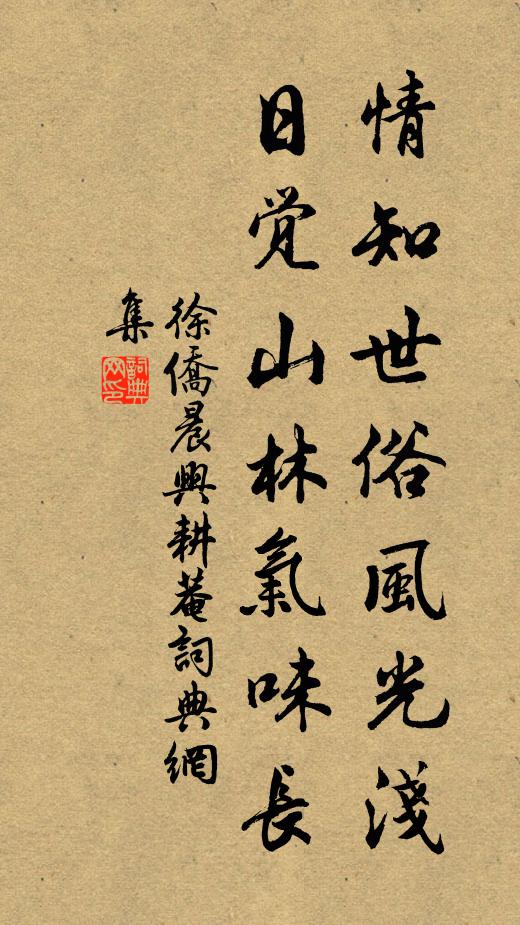 情知世俗風光淺
日觉山林氣味長
徐僑晨興耕菴詞典網
集
詞典网印